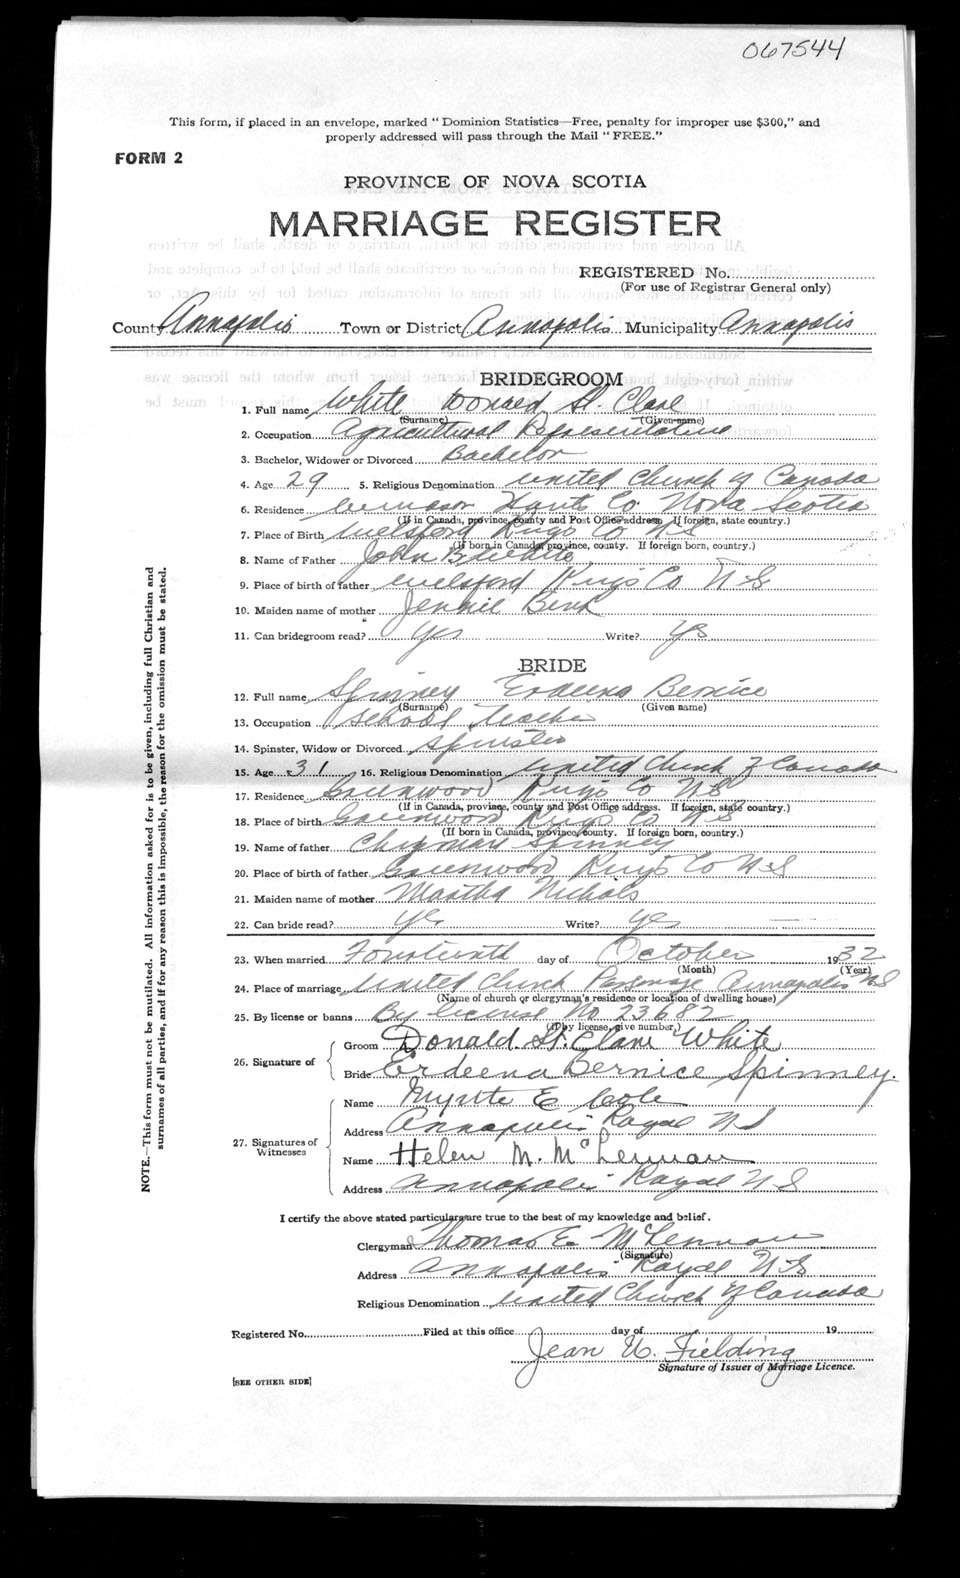 067544
This form, if placed in an envelope, marked "Dominion Statistics—Free, penalty for improper use $300," and
properly addressed will pass through the Mail "FREE."
FORM 2
PROVINCE OF NOVA SCOTIA
MARRIAGE REGISTER
REGISTERED No.
(For use of Registrar General only)
County Annapolis Town or District Annapolis Municipality Annapolis
BRIDEGROOM
1. Full name White Donald St. Clare
(Surname) (Given name)
2. Occupation Agricultural Representative
3. Bachelor, Widower or Divorced Bachelor
4. Age 29 5. Religious Denomination United Church of Canada
6. Residence Hants Co Nova Scotia
(If in Canada, province, county and Post Office address. If foreign, state country.)
7. Place of Birth Welsford Kings Co NS
(If born in Canada, province, county. If foreign born, country.)
8. Name of Father John B White
9. Place of birth of father Welsford Kings Co NS
10. Maiden name of mother Jennie
11. Can bridegroom read? yes Write? yes
BRIDE
12. Full name Spinney Erdeena Bernice
(Surname) (Given name)
13. Occupation School Teacher
14. Spinster, Widow or Divorced Spinster
15. Age 31 16. Religious Denomination United Church of Canada
17. Residence Greenwood Kings Co NS
(If in Canada, province, county and Post Office address. If foreign, state country.)
18. Place of birth Greenwood Kings Co NS
(If born in Canada, province, county. If foreign born, country.)
19. Name of father Chipman Spinney
20. Place of birth of father Greenwood Kings Co NS
21. Maiden name of mother Martha Nichols
22. Can bride read? yes Write? yes
23. When married Fourteenth day of October 1932
(Month) (Year)
24. Place of marriage United Church Parsonage Annapolis NS
(Name of church or clergyman's residence or location of dwelling house)
25. By license or banns By license No 23682
(If by license, give number.)
26. Signature of
Groom Donald St. Clare White
Bride Erdeena Bernice Spinney
27. Signatures of Witnesses
Name Myrtle E Cole
Address Annapolis Royal NS
Name Helen M. McLennan
Address Annapolis Royal NS
I certify the above stated particulars are true to the best of my knowledge and belief.
Clergyman Thomas E McLennan
(Signature)
Address Annapolis Royal NS
Religious Denomination United Church of Canada
Registered No. Filed at this office day of 19
Jean U. Fielding
Signature of Issuer of Marriage Licence.
[SEE OTHER SIDE]
NOTE.—This form must not be mutilated. All information asked for is to be given, including full Christian and
surnames of all parties, and if for any reason this is impossible, the reason for the omission must be stated.